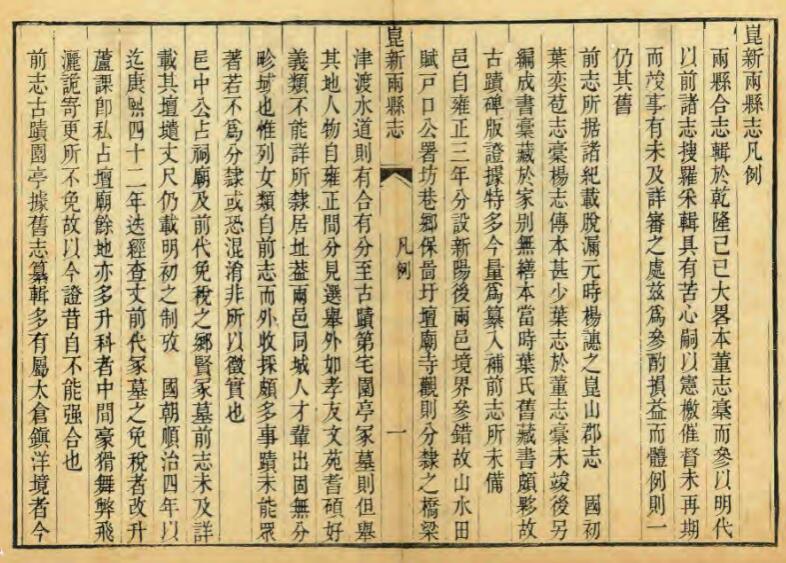 崑新兩縣志凡例
兩縣合志輯於乾隆己巳大畧本董志藁而參以明代
以前諸志搜羅采輯具有苦心嗣以憲檄催督未再期
而茂事有未及詳審之處茲爲參酌損益而體例則一
仍其舊
前志所据諸紀載脫漏元時楊譓之崑山郡志 國初
葉奕苞志藁楊志傳本甚少葉志於董志藁未竣後另
編成書藁藏於家别無繕本當時葉氏舊藏書頗夥故
古蹟碑版證據特多今量爲纂入補前志所未備
邑自雍正三年分設新陽後兩邑境界參錯故山水田
賦戸口公署坊巷鄉保啚圩壇廟寺觀則分隸之橋梁
崑新兩縣志 凡例 一
津渡水道則有合有分至古蹟第宅園亭冢墓則但舉
其地人物自雍正間分見選舉外如孝友文苑耆碩好
義類不能詳所隸居址葢兩邑同城人才輩出固無分
畛域也惟列女類自前志而外收採頗多事蹟未能眾
著若不爲分隸或恐混淆非所以徵實也
邑中公占祠廟及前代免稅之鄉賢冢墓前志未及詳
載其壇壝丈尺仍載明初之制攷 國朝順治四年以
迄康熙四十二年迭經查丈前代冢墓之免稅者改升
蘆課卽私占壇廟餘地亦多升科者中間豪猾舞弊飛
灑詭寄更所不免故以今證昔自不能强合也
前志古蹟園亭據舊志纂輯多有屬太倉鎭洋境者今